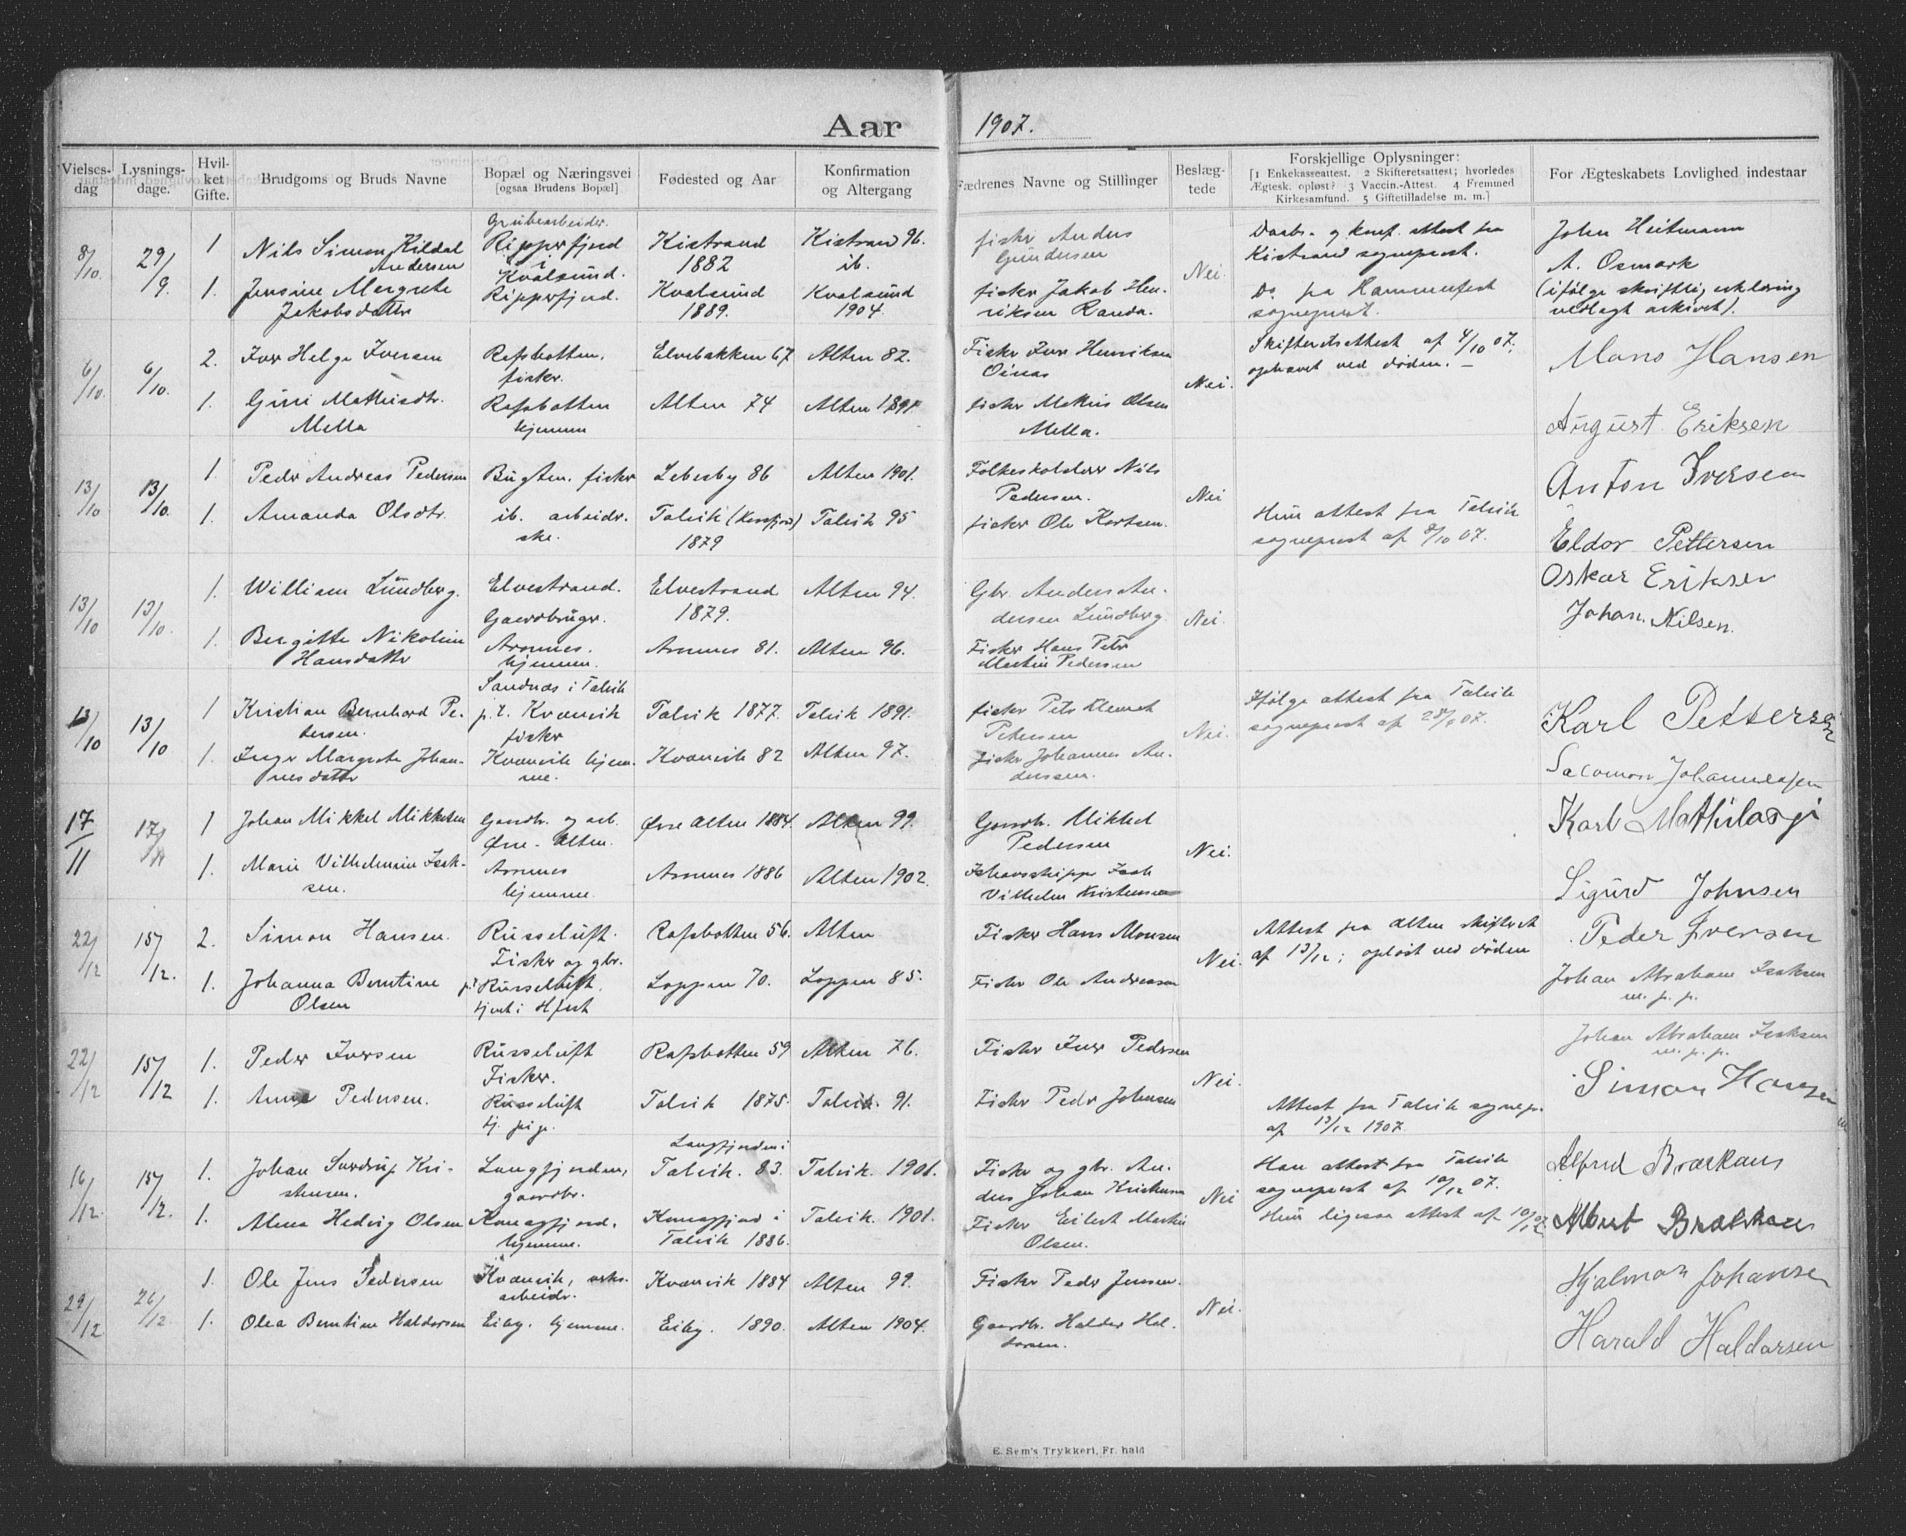 Aar 1907.
Vielses-dag
Lysnings-dage.
Hvil-ket Gifte.
Brudgoms og Bruds Navne
Bopæl og Næringsvei
[ogsaa Brudens Bopæl]
Fødested og Aar
Konfirmation og Altergang
Fædrenes Navne og Stillinger
Beslæg-tede
Forskjellige Oplysninger:
[1 Enkekasseattest. 2 Skifteretsattest; hvorledes
Ægtesk. opløst? 3 Vaccin.-Attest. 4 Fremmed
Kirkesamfund. 5 Giftetilladelse m. m.]
For Ægteskabets Lovlighed indestaar
8/10 29/9 1 Nils Simon Kildal Andersen
Grubearbeider. Ripperfjord i Kvalsund.
Kistrand 1882
Kistrand 96. ib.
fisker Anders Gundersen
Nei.
Daabs. og konf. attest fra
Kistrand sogneprest.
John Heitmann
1. Jensine Margrete Jakobsdatter
Ripperfjord.
Kvalsund 1889.
Kvalsund 1904.
fisker Jakob Hen-
riksen Randa.
Do fra Hammerfest
sogneprest.
A. Osmark
(ifølge skriftlig erklæring
vedlagt arkivet).
6/10 6/10. 2. Iver Helge Iversen
Rafsbotten. fisker.
Elvebakken 67
Alten 82.
Fisker Iver Henriksen Oinas
Nei.
Skifteretsattest af 4/10 07.
ophævet ved døden. –
Mons Hansen
1. Gini Mathisdtr. Mella
Rafsbotten hjemme
Alten 74
Alten 1891
fisker Matius Olsen Mella.
August Eriksen
13/10 13/10. 1. Peder Andreas Pedersen
Bugten. fisker
Lebesby 86
Alten 1901.
Folkeskolelærer Nils Pedersen.
Nei
Anton Iversen
1. Amanda Olsdtr.
ib. arbeider-
ske.
Talvik (Korsfjord) 1879
Talvik 95
fisker Ole Kortsen.
Hun attest fra Talvik
sogneprest af 8/10 07.
Eldor Pettersen
13/10 13/10. 1. William Lundberg.
Elvestrand. Gaardbruger.
Elvestrand 1879.
Alten 94.
Gbr. Anders An-
dersen Lundberg.
Nei.
Oskar Eriksen
1. Bergitte Nikoline Hansdatter
Aronnes. hjemme.
Aronnes 81.
Alten 96.
Fisker Hans Peter
Martin Pedersen
Johan Nilsen.
13/10 13/10 1 Kristian Bernhard Pe-
tersen.
Sandnæs i Talvik
p.t. Kvænvik fisker
Talvik 1877.
Talvik 1891.
fisker Peter Klemet Petersen
Nei.
Ifølge attest fra Talvik
sogneprest af 28/9 07.
Karl Pettersen
1. Inger Margrete Johan-
nesdatter
Kvænvik hjem-
me.
Kvænvik 82
Alten 97.
fisker Johannes An-
derssen.
Salomon Johannessen
17/11 17/11 1 Johan Mikkel Mikkelsen
Gaardbr. og arb. Øvre-Alten.
Øvre Alten 1884.
Alten 99.
Gaardbr. Mikkel Pedersen
Nei.
Karl Mathilasji
1. Marie Vilhelmine Isak-
sen.
Aronnes hjemme.
Aronnes 1886
Alten 1902.
Ishavsskipper Isak
Vilhelm Kristensen
Sigurd Johnsen
22/12 15/12. 2. Simon Hansen.
Russeluft. Fisker og gbr.
Rafsbotten 56.
Alten
Fisker Hans Monsen
Nei.
Attest fra Alten skifteret
af 13/12; opløst ved døden
Peder Iversen
1. Johanna Berntine Olsen
Russeluft. tjent i Hfest
Loppen 70.
Loppen 85.
Fisker Ole Andreassen
Johan Abraham Isaksen
m. p. p.
22/12 15/12 1. Peder Iversen
Russeluft Fisker.
Rafsbotten 59
Alten 76.
Fisker Iver Pedersen
Nei.
Johan Abraham Isaksen
m. p. p.
1. Anna Pedersen.
Russeluft tj. pige.
Talvik 1875.
Talvik. 91.
Fisker Peder Johnsen
Attest fra Talvik sognepr.
af 13/12 1907.
Simon Hansen
16/12. 15/12. 1. Johan Sverdrup Kri-
stensen.
Langfjorden, gaardbr.
Langfjorden i Talvik. 83.
Talvik. 1901.
Fisker og gbr. An-
ders Johan Kristensen
Nei
Han attest fra Talvik
sogneprest af 10/12 07.
Alfred Brækans
1. Alma Hedvig Olsen
Komagfjord. hjemme.
Komagfjord i Talvik 1886.
Talvik. 1901.
Fisker Eilert Martin Olsen.
Hun ligesaa attest af 10/12 07.
Albert Brækkan
29/12 26/12 1. Ole Jens Pedersen
Kvænvik, verks-
arbeider.
Kvænvik 1884
Alten 99.
Fisker Peder Jensen.
Nei.
Hjalmar Johansen
1. Olea Berntine Haldorsen
Eiby. hjemme.
Eiby. 1890.
Alten 1904.
Gaardbr. Haldor Hal-
dorsen.
Harald Haldorsen
E. Sem's Trykkeri, Fr. hald